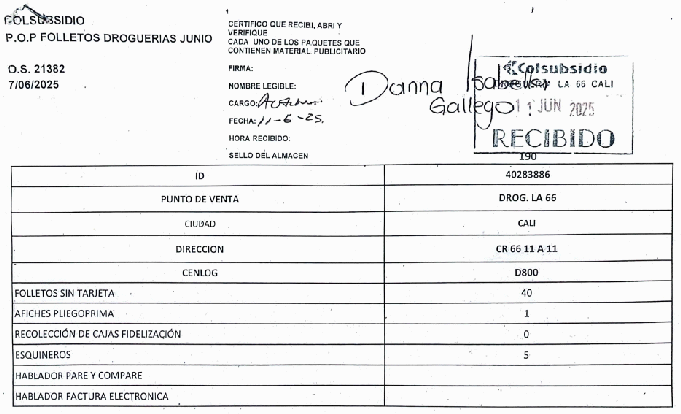 COLSUBSIDIO
P.O.P FOLLETOS DROGUERIAS JUNIO
O.S. 21382
7/06/2025
CERTIFICO QUE RECIBI, ABRI Y
VERIFIQUE
CADA UNO DE LOS PAQUETES QUE
CONTIENEN MATERIAL PUBLICITARIO
FIRMA:
NOMBRE LEGIBLE: Danna Isabella
Gallego
CARGO:
FECHA: 11-6-25.
HORA RECIBIDO:
SELLO DEL ALMACEN
Colsubsidio
LA 66 CALI
11 JUN 2025
RECIBIDO
190
ID 40283886
PUNTO DE VENTA DROG. LA 66
CIUDAD CALI
DIRECCION CR 66 11 A 11
CENLOG D800
FOLLETOS SIN TARJETA 40
AFICHES PLIEGOPRIMA 1
RECOLECCIÓN DE CAJAS FIDELIZACIÓN 0
ESQUINEROS 5
HABLADOR PARE Y COMPARE
HABLADOR FACTURA ELECTRONICA